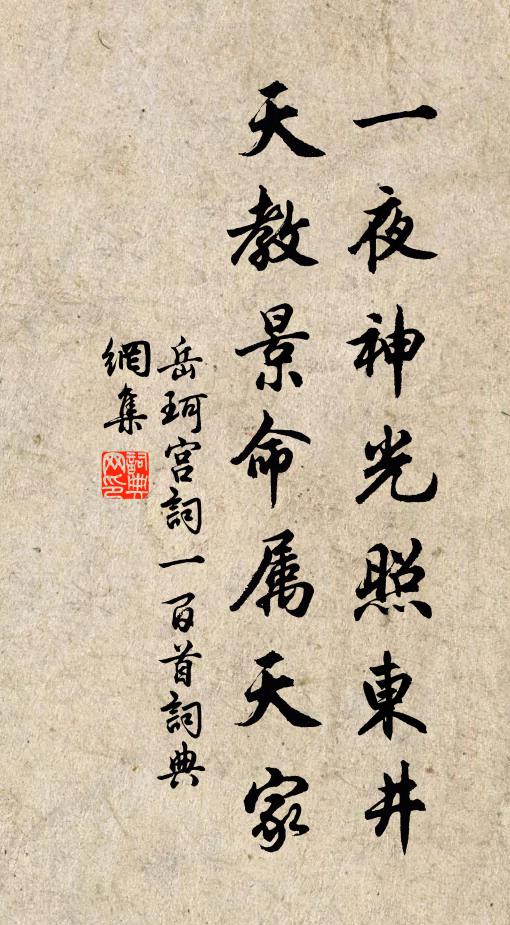 一夜神光照東井
天教景命属天家
岳珂宫詞一百首詞典
網集
詞典網印